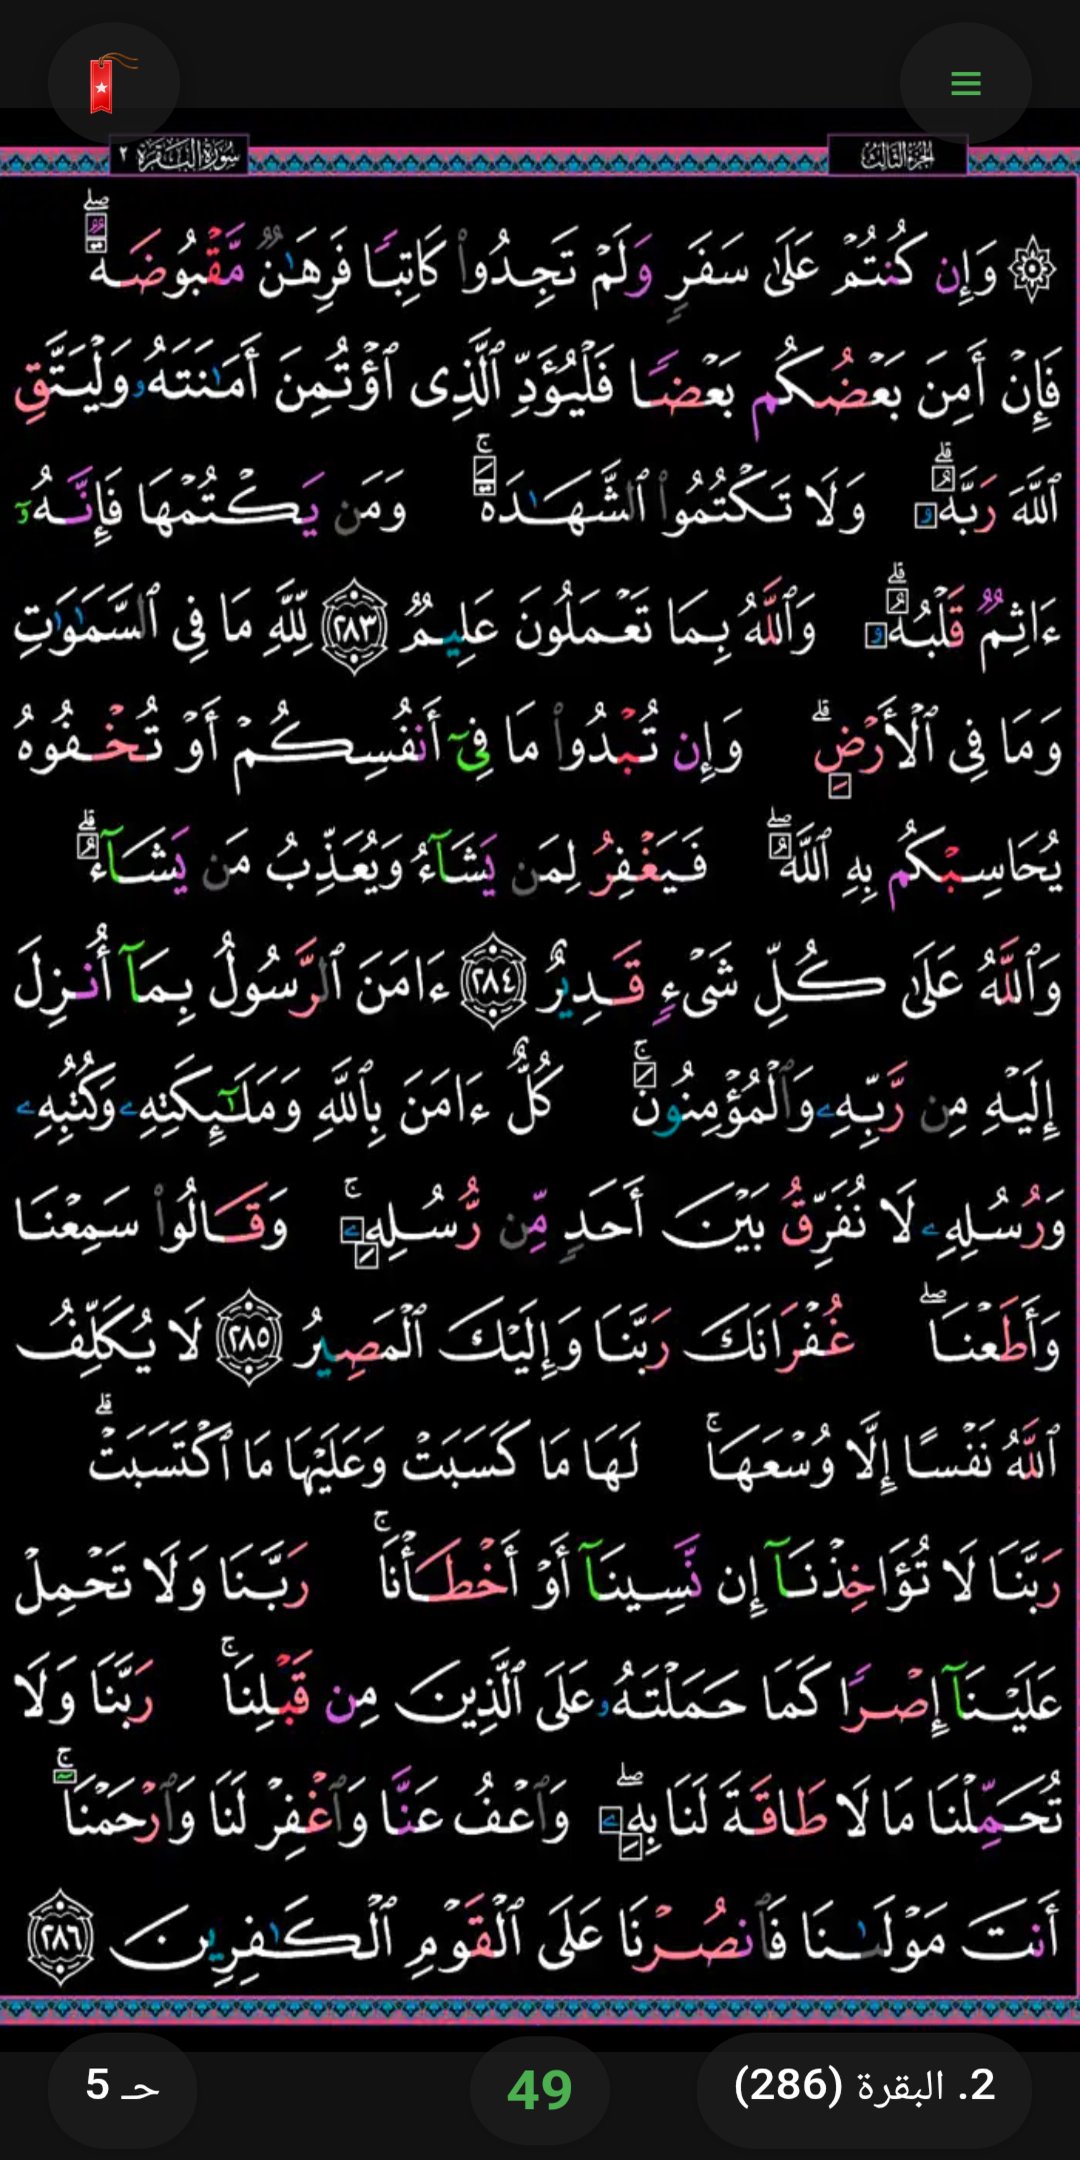 الجزء الثالث
سورة البقرة ٢
۞ وَإِن كُنتُمْ عَلَىٰ سَفَرٍ وَلَمْ تَجِدُوا۟ كَاتِبًا فَرِهَـٰنٌ مَّقْبُوضَةٌ ۖ
فَإِنْ أَمِنَ بَعْضُكُم بَعْضًا فَلْيُؤَدِّ ٱلَّذِى ٱؤْتُمِنَ أَمَـٰنَتَهُۥ وَلْيَتَّقِ
ٱللَّهَ رَبَّهُۥ ۗ وَلَا تَكْتُمُوا۟ ٱلشَّهَـٰدَةَ ۚ وَمَن يَكْتُمْهَا فَإِنَّهُۥٓ
ءَاثِمٌ قَلْبُهُۥ ۗ وَٱللَّهُ بِمَا تَعْمَلُونَ عَلِيمٌ ٢٨٣ لِّلَّهِ مَا فِى ٱلسَّمَـٰوَٰتِ
وَمَا فِى ٱلْأَرْضِ ۗ وَإِن تُبْدُوا۟ مَا فِىٓ أَنفُسِكُمْ أَوْ تُخْفُوهُ
يُحَاسِبْكُم بِهِ ٱللَّهُ ۖ فَيَغْفِرُ لِمَن يَشَآءُ وَيُعَذِّبُ مَن يَشَآءُ ۗ
وَٱللَّهُ عَلَىٰ كُلِّ شَىْءٍ قَدِيرٌ ٢٨٤ ءَامَنَ ٱلرَّسُولُ بِمَآ أُنزِلَ
إِلَيْهِ مِن رَّبِّهِۦ وَٱلْمُؤْمِنُونَ ۚ كُلٌّ ءَامَنَ بِٱللَّهِ وَمَلَـٰٓئِكَتِهِۦ وَكُتُبِهِۦ
وَرُسُلِهِۦ لَا نُفَرِّقُ بَيْنَ أَحَدٍ مِّن رُّسُلِهِۦ ۚ وَقَالُوا۟ سَمِعْنَا
وَأَطَعْنَا ۖ غُفْرَانَكَ رَبَّنَا وَإِلَيْكَ ٱلْمَصِيرُ ٢٨٥ لَا يُكَلِّفُ
ٱللَّهُ نَفْسًا إِلَّا وُسْعَهَا ۚ لَهَا مَا كَسَبَتْ وَعَلَيْهَا مَا ٱكْتَسَبَتْ ۗ
رَبَّنَا لَا تُؤَاخِذْنَآ إِن نَّسِينَآ أَوْ أَخْطَأْنَا ۚ رَبَّنَا وَلَا تَحْمِلْ
عَلَيْنَآ إِصْرًا كَمَا حَمَلْتَهُۥ عَلَى ٱلَّذِينَ مِن قَبْلِنَا ۚ رَبَّنَا وَلَا
تُحَمِّلْنَا مَا لَا طَاقَةَ لَنَا بِهِۦ ۖ وَٱعْفُ عَنَّا وَٱغْفِرْ لَنَا وَٱرْحَمْنَآ ۚ
أَنتَ مَوْلَىٰنَا فَٱنصُرْنَا عَلَى ٱلْقَوْمِ ٱلْكَـٰفِرِينَ ٢٨٦
2. البقرة (286)
49
حـ 5